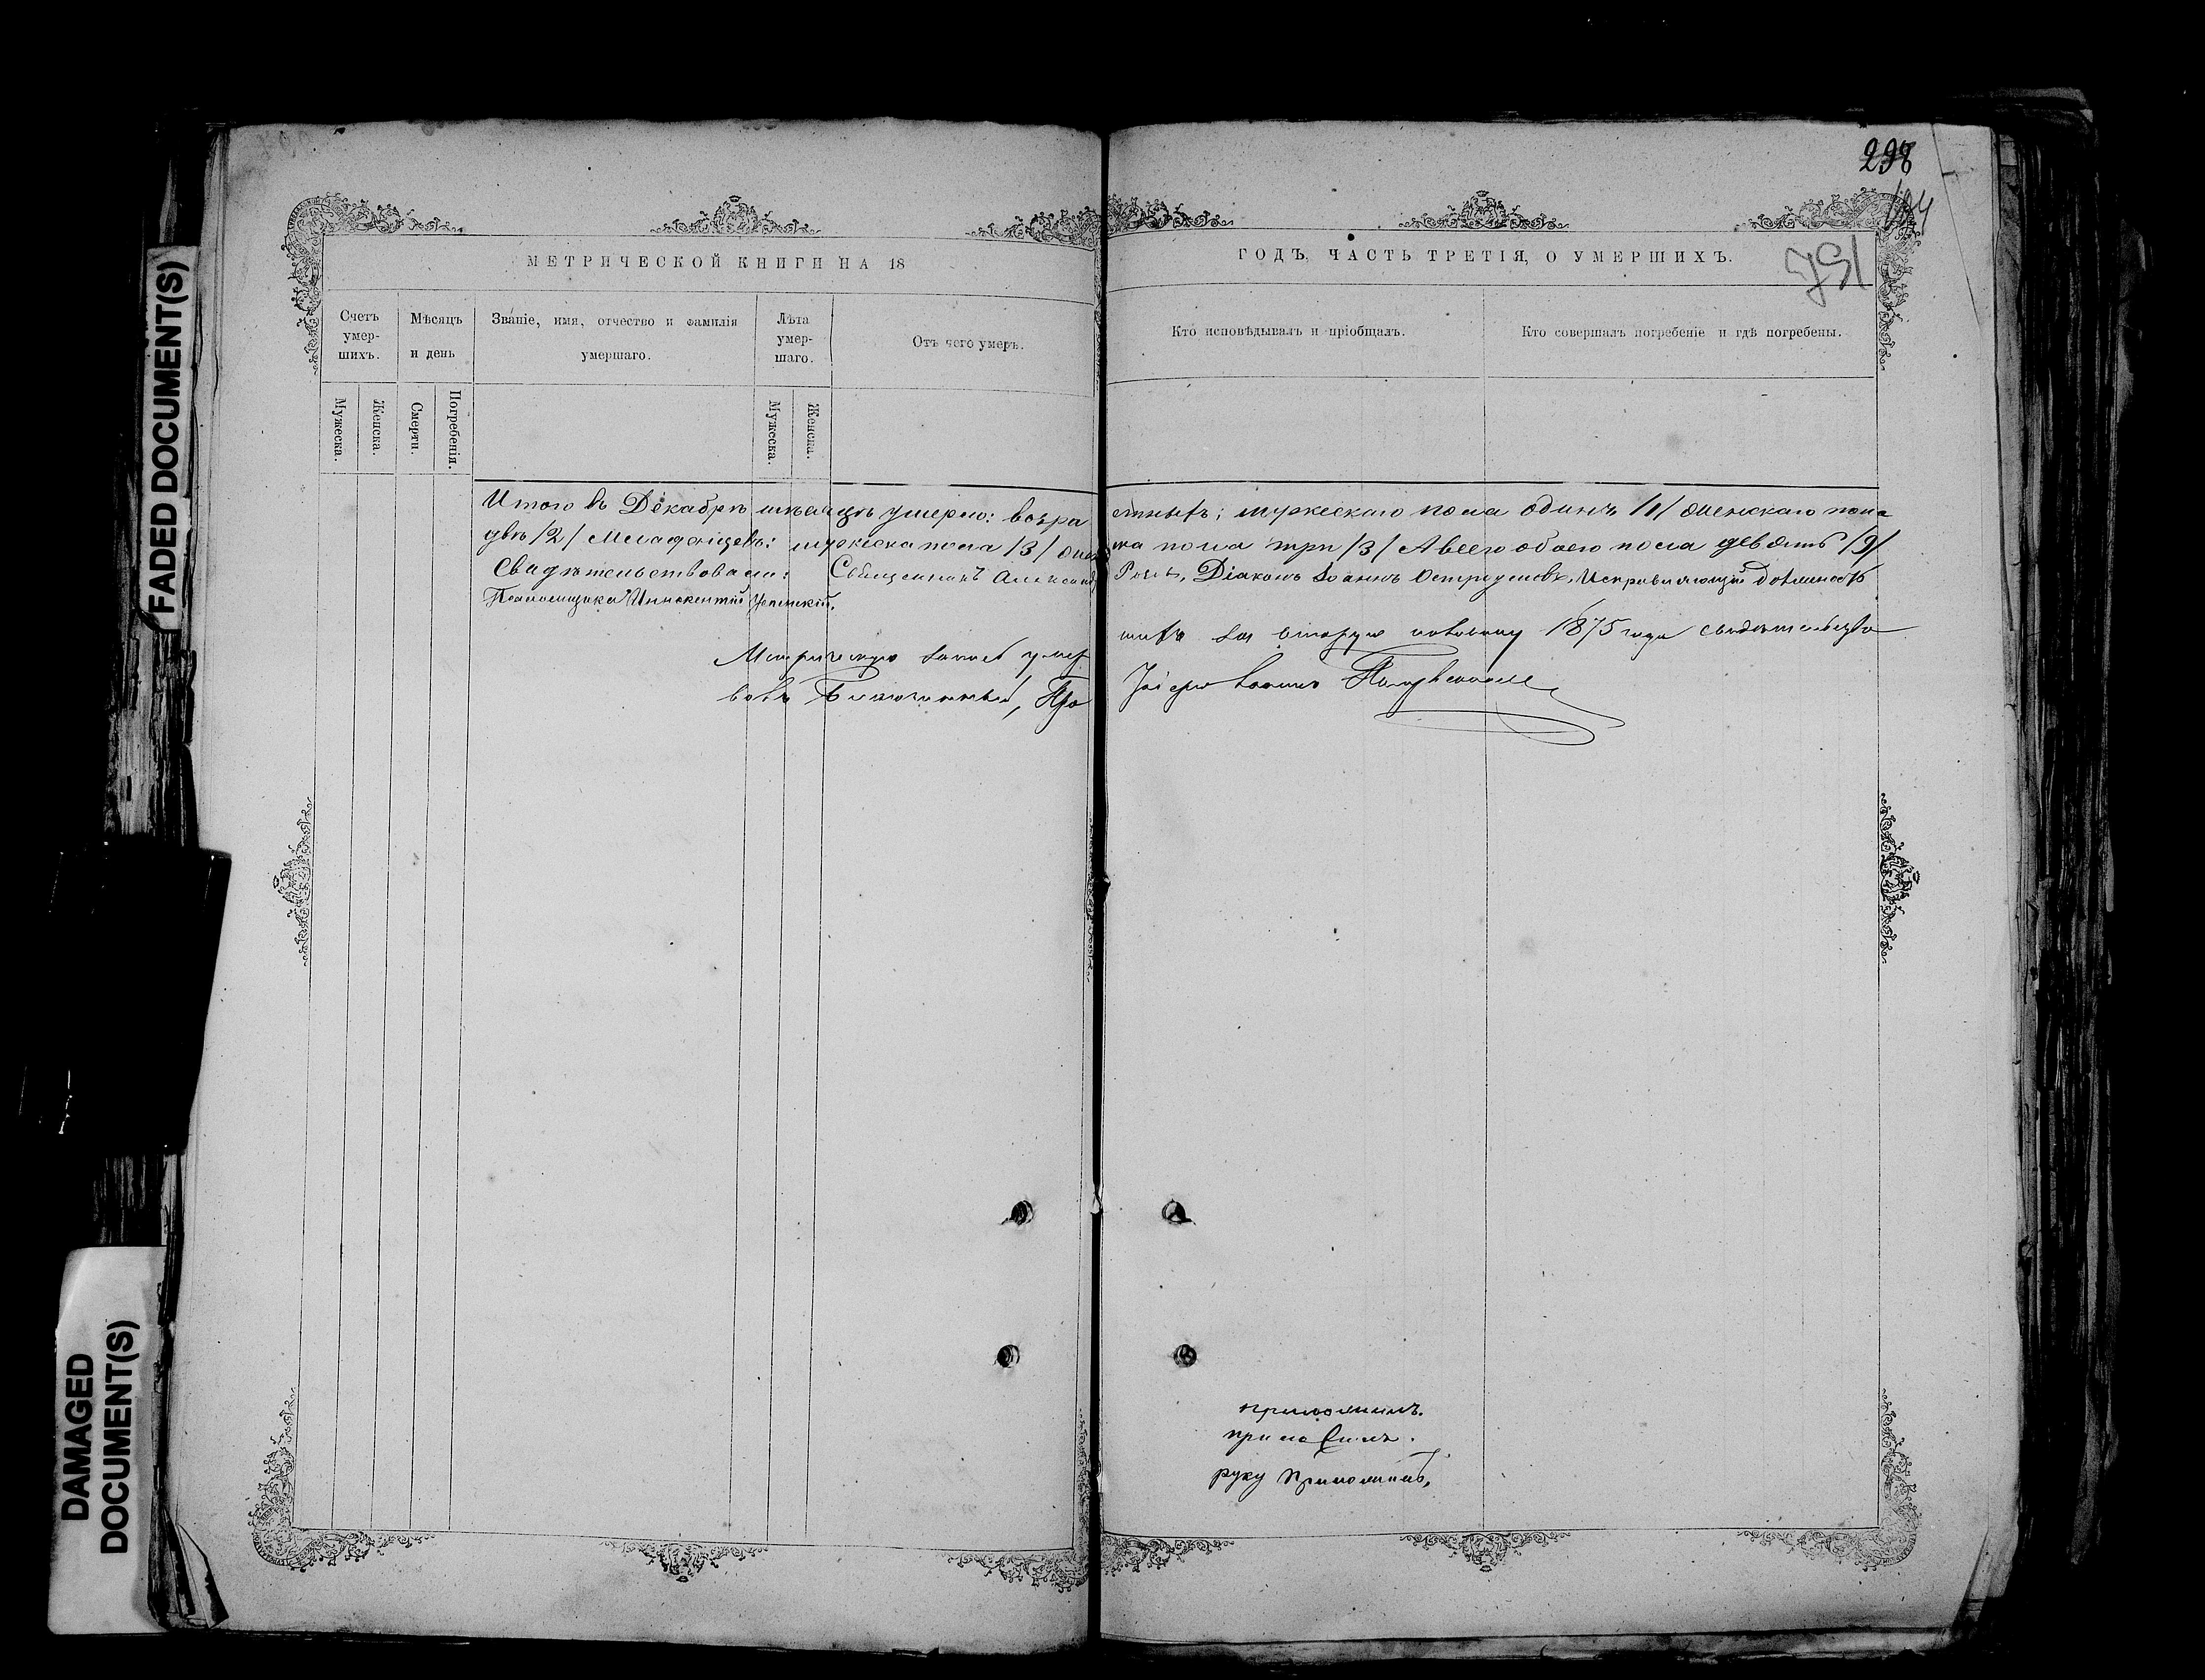 FADED DOCUMENT(S)
DAMAGED
DOCUMENT(S)
298
МЕТРИЧЕСКОЙ КНИГИ НА 18
ГОДЪ, ЧАСТЬ ТРЕТІЯ, О УМЕРШИХЪ.
Счетъ умер-шихъ.
Мѣсяцъ и день
Званіе, имя, отчество и фамилія умершаго.
Лѣта умер-шаго.
Отъ чего умеръ.
Кто исповѣдывалъ и пріобщалъ.
Кто совершалъ погребеніе и гдѣ погребены.
Мужеска.
Женска.
Смерти.
Погребенія.
Мужеска.
Женска.
Итого въ Декабрѣ мѣсяцѣ умерло: возра стныхъ: мужескаго пола одинъ /1/ женскаго пола
двѣ /2/ Младенцевъ: мужеска пола /3/ жен ска пола три /3/ А всего обоего пола девять /9/
Свидѣтельствовали: Священникъ Александръ Діаконъ Іоаннъ Остроумовъ, Исправляющій должность
Псаломщика Иннокентій Успенскій.
Метрическую запись умер шихъ за вторую половину 1875 года свидѣтельство
валъ Благочинный, Про Іоаннъ
приложилъ.
приложилъ.
руку приложилъ,